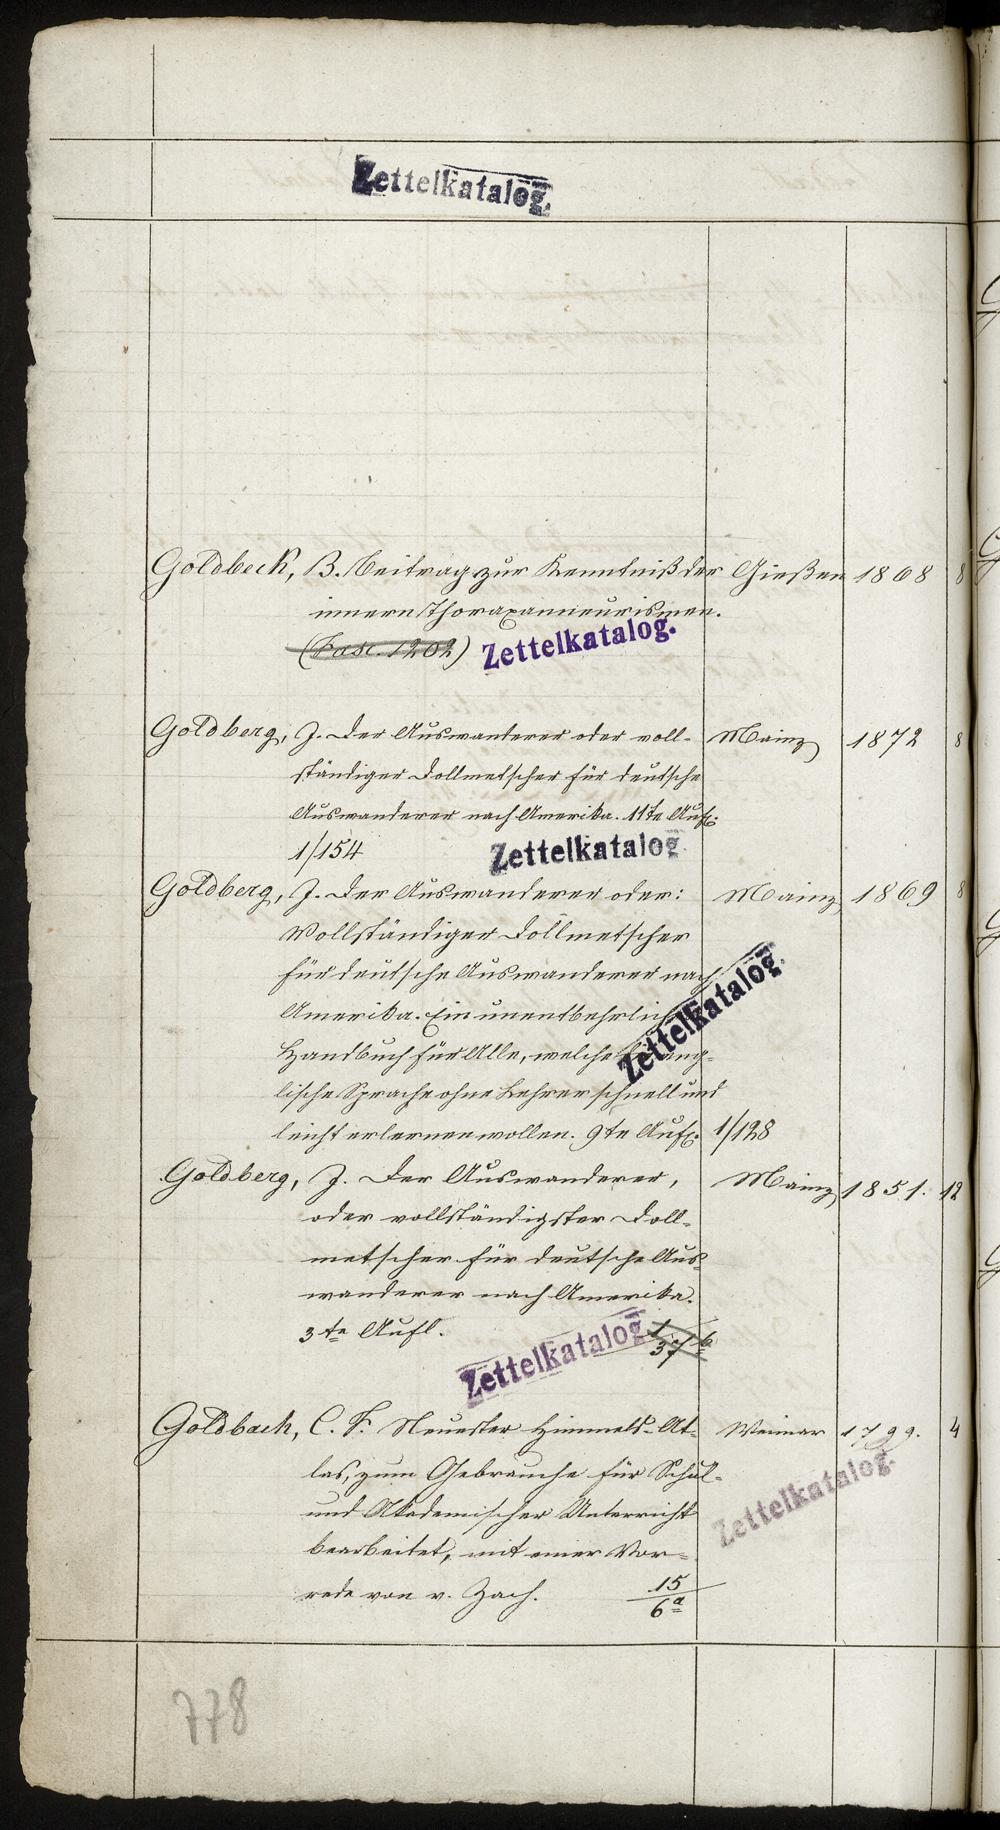 Zettelkatalog.
Goldbeck, B. Beitrag zur Kenntniß der Gießen 1868 8
innern Thoraxanneurismen.
(Fasc. 1202) Zettelkatalog.
Goldberg, J. Der Auswanderer oder voll- Mainz 1872 8
ständiger Dollmetscher für deutsche
Auswanderer nach Amerika. 11te Aufl.
1/154 Zettelkatalog
Goldberg, J. Der Auswanderer oder: Mainz 1869 8
Vollständiger Dollmetscher
für deutsche Auswanderer nach
Zettelkatalog.
Amerika. Ein unentbehrlich
Handbuch für Alle, welche eng-
lische Sprache ohne Lehrer schnell und
leicht erlernen wollen. 9te Aufl. 1/128
Goldberg, J. Der Auswanderer, Mainz 1851. 12
oder vollständigster Doll-
metscher für deutsche Aus-
wanderer nach Amerika.
3te Aufl. 1/37b
Zettelkatalog
Goldbach, C. F. Neuester Himmels-At- Weimar 1799. 4
las, zum Gebrauche für Schul-
und Akademischer Unterricht
Zettelkatalog.
bearbeitet, mit einer Vor-
rede von v. Zach. 15/6a
778